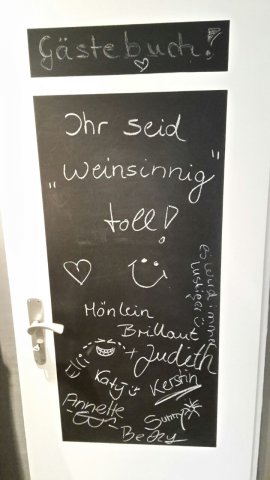 Gästebuch!
Ihr seid
"Weinsinnig"
toll!
es wird immer
lustiger
Mönlein
Brillaut
+ Judith
Elli
Katy
Kerstin
Annette
Sunny